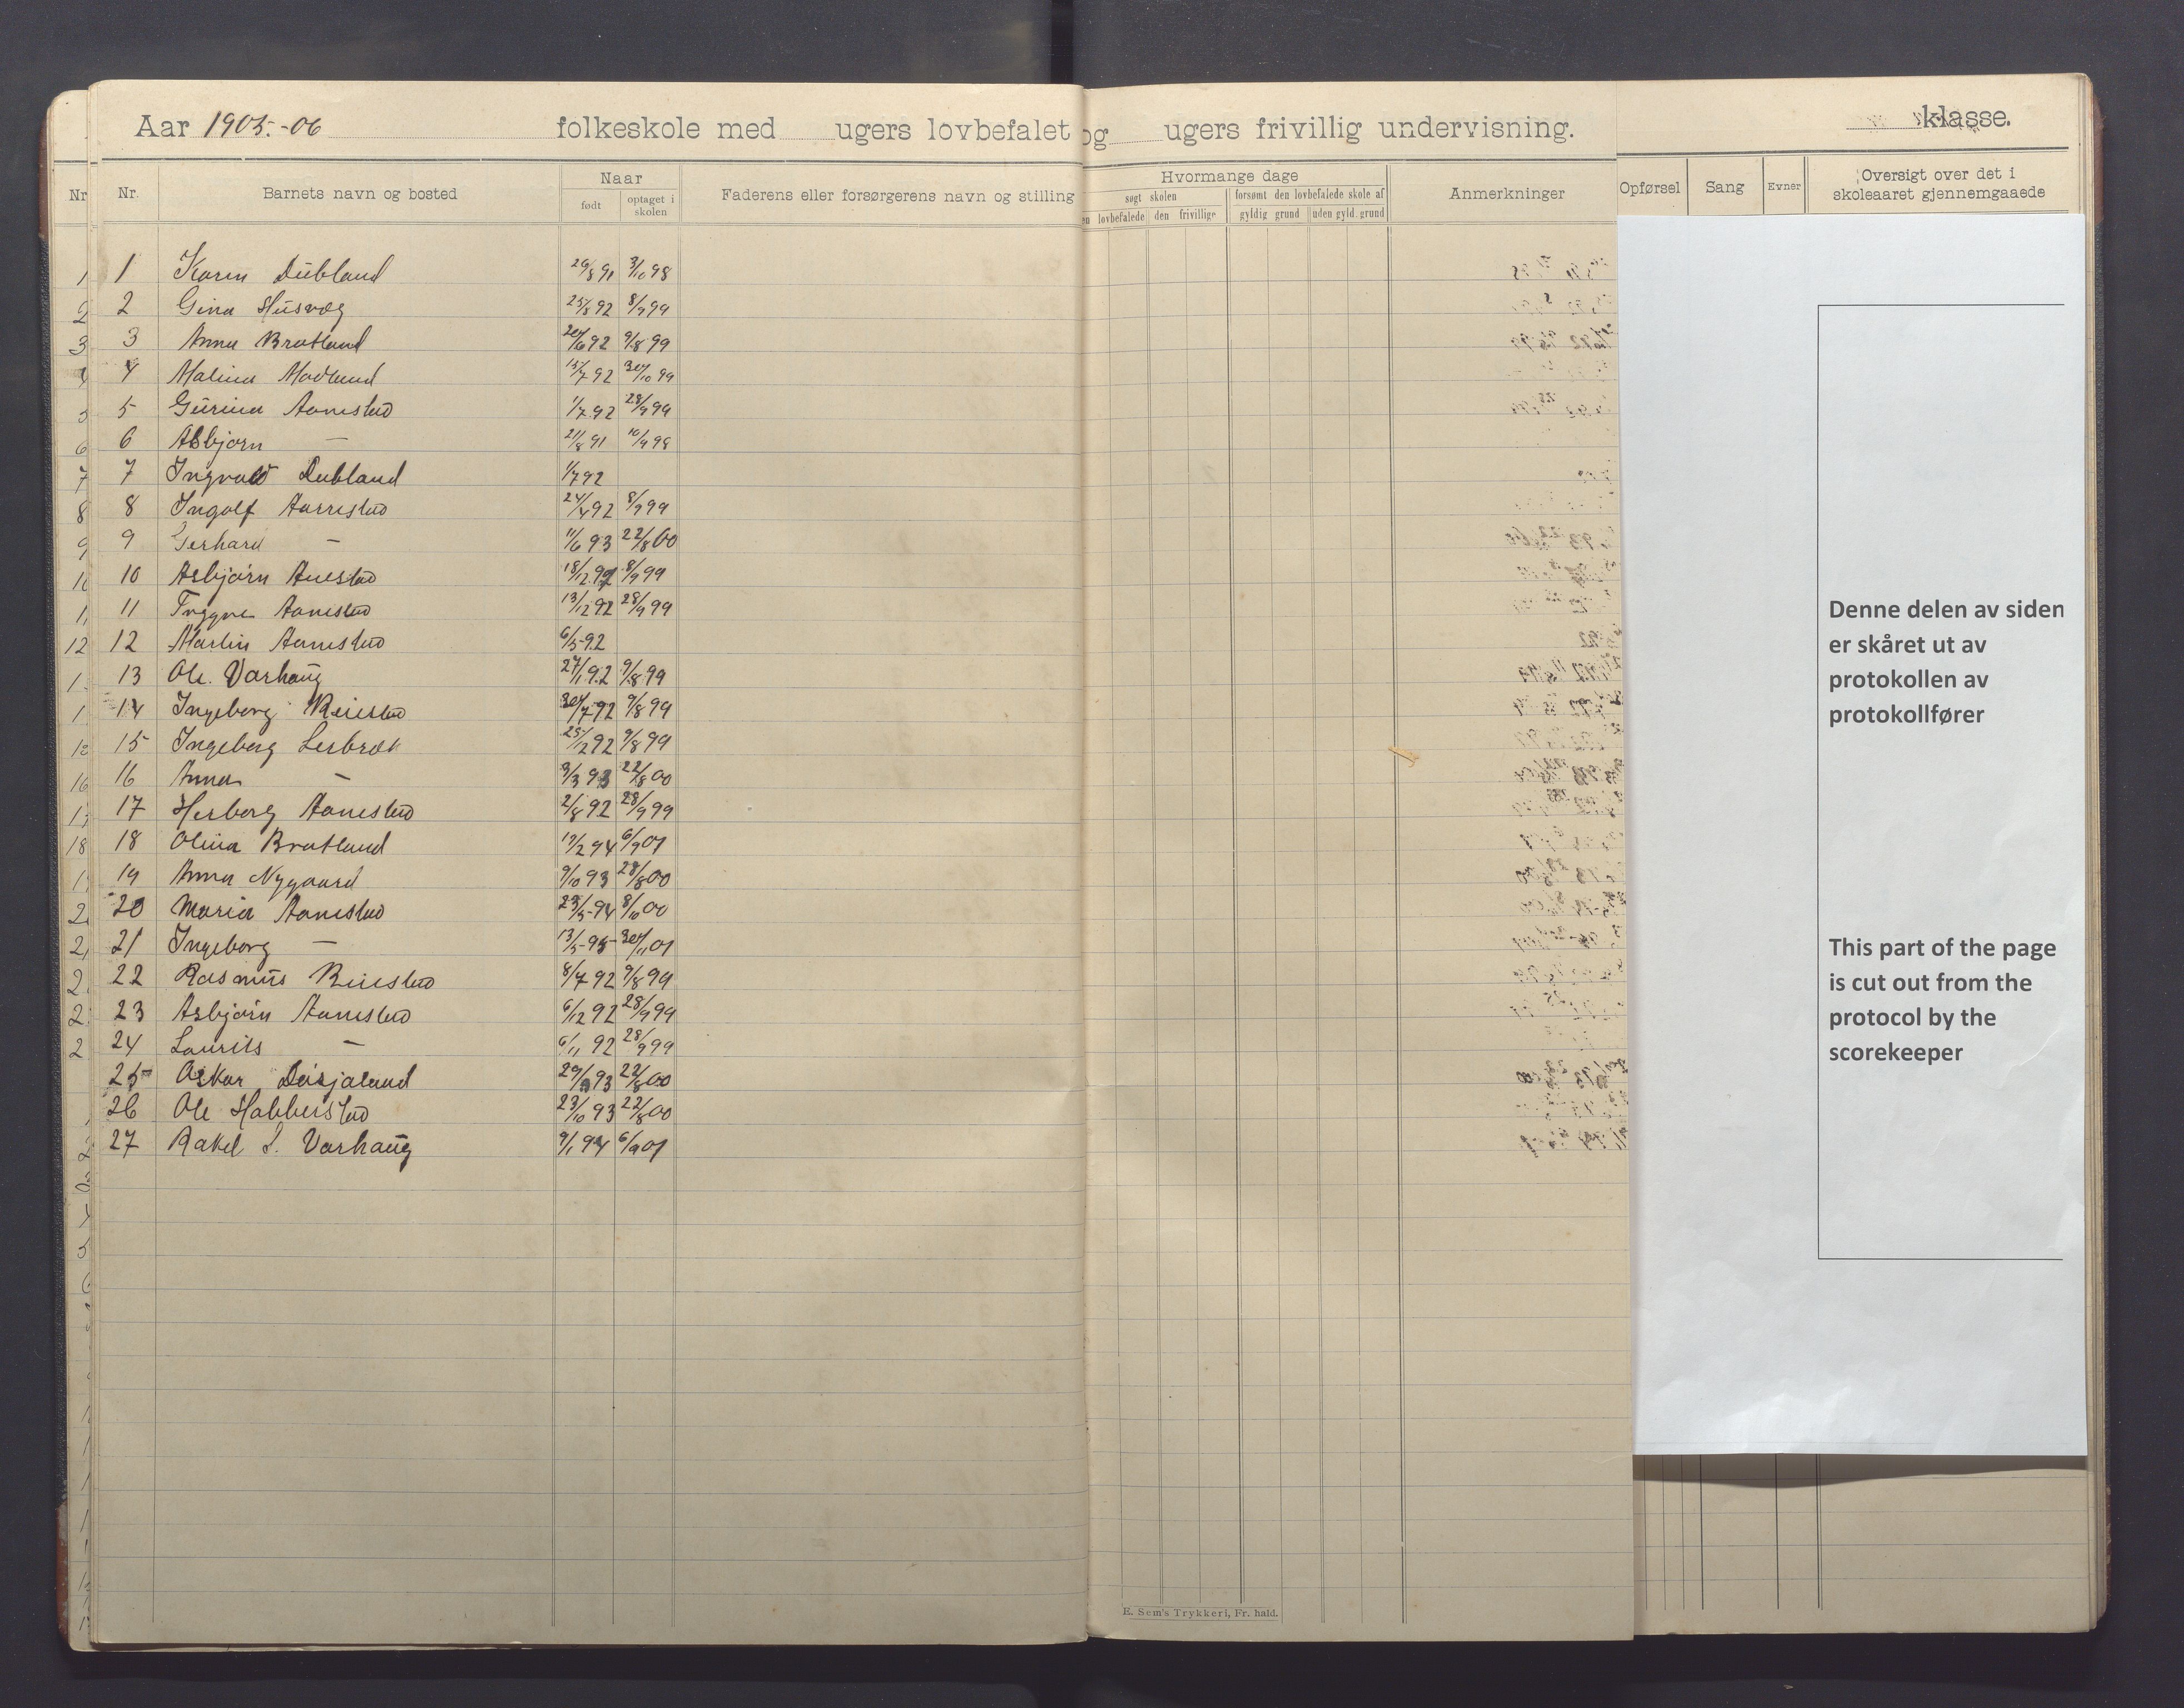 Aar 1905.-06 folkeskole med ugers lovbefalet og ugers frivillig undervisning. klasse.
Nr. Barnets navn og bosted Naar Faderens eller forsørgerens navn og stilling Hvormange dage Anmerkninger Opførsel Sang Evner Oversigt over det i skoleaaret gjennemgaaede
født optaget i skolen søgt skolen forsømt den lovbefalede skole af
en lovbefalede den frivillige gyldig grund uden gyld. grund
1 Karen Dubland 26/8 91 3/10 98
2 Gina Husvæg 25/8 92 8/9 99
3 Anna Bratland 20/6 92 9/8 99
4 Malina Madland 15/7 92 30/10 99
5 Gurina Aanestad 1/7 92 28/9 99
6 Asbjørn — 21/8 91 10/9 98
7 Ingvald Dubland 1/7 92
8 Ingolf Aarrestad 24/4 92 8/9 99
9 Gerhard — 11/6 93 22/8 00
10 Asbjørn Anestad 18/12 92 8/9 99
11 Trygve Aanestad 13/12 92 28/9 99
12 Martin Aanestad 6/5-92
13 Ole. Varhaug 27/1 92 9/8 99
14 Ingeborg Reiestad 30/7-92 9/8 99
15 Ingeborg Lerbræk 25/12 92 9/8 99
16 Anna — 3/3 93 22/8 00
17 Herborg Aanestad 2/8 92 28/9 99
18 Olina Bratland 19/2 94 6/9 01
19 Anna Nygaard 9/10 93 28/8 00
20 Maria Aanestad 23/5-94 8/10 00
21 Ingeborg — 13/5-95- 30/11 01
22 Rasmus Reiestad 8/7 92 9/8 99
23 Asbjørn Aanestad 6/12 92 28/9 99
24 Laurits — 6/11 92 28/9 99
25 Oskar Dusjaland 29/3 93 22/8 00
26 Ole Habberstad 23/10 93 22/8 00
27 Rakel S. Varhaug 9/1 94 6/9 01
E. Sem's Trykkeri, Fr. hald.
Denne delen av siden
er skåret ut av
protokollen av
protokollfører
This part of the page
is cut out from the
protocol by the
scorekeeper